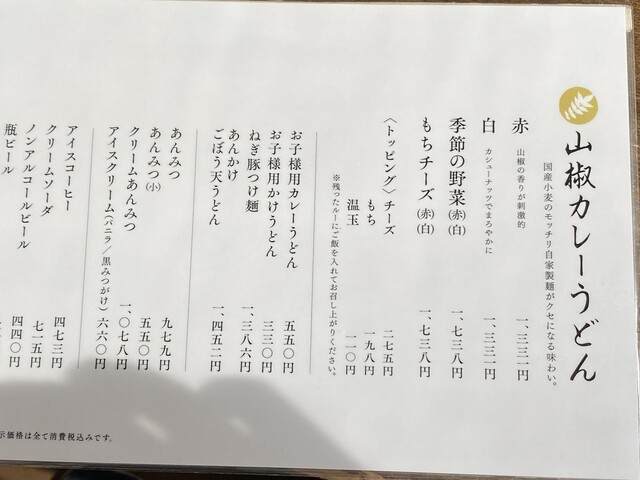 山椒カレーうどん
国産小麦のモッチリ自家製麺がクセになる味わい。
赤 山椒の香りが刺激的 一、三三一円
白 カシューナッツでまろやかに 一、三三一円
季節の野菜(赤)(白) 一、七三八円
もちチーズ(赤)(白) 一、七三八円
〈トッピング〉チーズ 二七五円
もち 一九八円
温玉 一一〇円
※残ったルーにご飯を入れてお召し上がりください。
お子様用カレーうどん 五五〇円
お子様用かけうどん 三三〇円
ねぎ豚つけ麺 一、三八六円
あんかけ
ごぼう天うどん 一、四五二円
あんみつ 九七九円
あんみつ(小) 五五〇円
クリームあんみつ 一、〇七八円
アイスクリーム(バニラ/黒みつがけ) 六六〇円
アイスコーヒー 四七三円
クリームソーダ 七一五円
ノンアルコールビール 四四〇円
瓶ビール
示価格は全て消費税込みです。